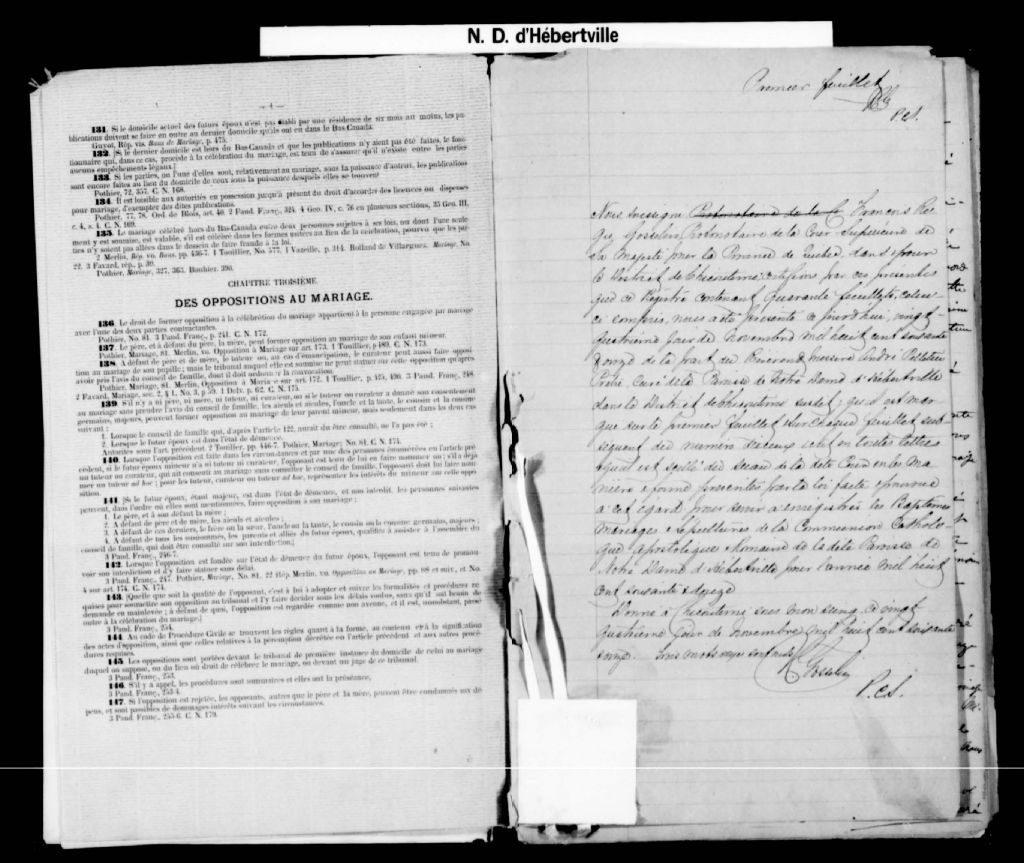 N. D. d'Hébertville
— 4 —
131. Si le domicile actuel des futurs époux n'est pas établi par une résidence de six mois au moins, les pu-
blications doivent se faire en outre au dernier domicile qu'ils ont eu dans le Bas-Canada.
Guyot, Rép. vis. Bans de Mariage, p. 475.
132. [Si le dernier domicile est hors du Bas-Canada et que les publications n'y aient pas été faites, le fonc-
tionnaire qui, dans ce cas, procède à la célébration du mariage, est tenu de s'assurer qu'il n'existe entre les parties
aucuns empêchements légaux.]
133. Si les parties, ou l'une d'elles, sont, relativement au mariage, sous la puissance d'autrui, les publications
sont encore faites au lieu du domicile de ceux sous la puissance desquels elles se trouvent
Pothier, 72, 357. C. N. 168.
134. Il est loisible aux autorités en possession jusqu'à présent du droit d'accorder des licences ou dispenses
pour mariage, d'exempter des dites publications.
Pothier, 77, 78. Ord de Blois, art. 40. 2 Pand. Franç., 324. 4 Geo. IV, c. 76 en plusieurs sections, 35 Geo. III,
c. 4, s. 4. C. N. 169.
135. Le mariage célébré hors du Bas-Canada entre deux personnes sujettes à ses lois, ou dont l'une seule-
ment y est soumise, est valable, s'il est célébré dans les formes usitées au lieu de la célébration, pourvu que les par-
ties n'y soient pas allées dans le dessein de faire fraude à la loi.
2 Merlin, Rép. vo. Bans. pp. 456-7. 1 Toullier, No. 577. 1 Vazeille, p. 314. Rolland de Villargues, Mariage, No.
22. 3 Favard, rép., p. 39.
Pothier, Mariage, 327, 363. Bouhier, 390.
CHAPITRE TROISIÈME.
DES OPPOSITIONS AU MARIAGE.
136. Le droit de former opposition à la célébration du mariage appartient à la personne engagée par mariage
avec l'une des deux parties contractantes.
Pothier, No. 81. 3 Pand. Franç., p. 241. C. N. 172.
137. Le père, et à défaut du père, la mère, peut former opposition au mariage de son enfant mineur.
Pothier, Mariage, 81. Merlin, vo. Opposition à Mariage sur art. 173. 1 Toullier, p. 489. C. N. 173.
138. A défaut de père et de mère, le tuteur ou, au cas d'émancipation, le curateur peut aussi faire opposi-
tion au mariage de son pupille; mais le tribunal auquel elle est soumise ne peut statuer sur cette opposition qu'après
avoir pris l'avis du conseil de famille, dont il doit ordonner la convocation.
Pothier, Mariage, 81. Merlin, Opposition à Mariage sur art. 172. 1 Toullier, p. 425, 490. 3 Pand. Franç., 248.
2 Favard, Mariage, sec. 2, § 1, No. 3, p. 59. 1 Delv. p. 62. C. N. 175.
139. S'il n'y a ni père, ni mère, ni tuteur, ni curateur, ou si le tuteur ou curateur a donné son consentement
au mariage sans prendre l'avis du conseil de famille, les aïeuls et aïeules, l'oncle et la tante, le cousin et la cousine
germains, majeurs, peuvent former opposition au mariage de leur parent mineur, mais seulement dans les deux cas
suivants :
1. Lorsque le conseil de famille qui, d'après l'article 122, aurait dû être consulté, ne l'a pas été ;
2. Lorsque le futur époux est dans l'état de démence.
Autorités sous l'art. précédent. 2 Toullier, pp. 446-7. Pothier, Mariage, No. 81. C. N. 174.
140. Lorsque l'opposition est faite dans les circonstances et par une des personnes énumérées en l'article pré-
cédent, si le futur époux mineur n'a ni tuteur ni curateur, l'opposant est tenu de lui en faire nommer un ; s'il a déjà
un tuteur ou curateur, qui ait consenti au mariage sans consulter le conseil de famille, l'opposant doit lui faire nom-
mer un tuteur ad hoc ; pour les tuteur, curateur ou tuteur ad hoc, représenter les intérêts du mineur sur cette oppo-
sition.
141. [Si le futur époux, étant majeur, est dans l'état de démence, et non interdit, les personnes suivantes
peuvent, dans l'ordre où elles sont mentionnées, faire opposition à son mariage ;
1. Le père, et à son défaut la mère ;
2. A défaut de père et de mère, les aïeuls et aïeules ;
3. A défaut de ces derniers, le frère ou la sœur, l'oncle ou la tante, le cousin ou la cousine germains, majeurs ;
4. A défaut de tous les susnommés, les parents et alliés du futur époux, qualifiés à assister à l'assemblée du
conseil de famille, qui doit être consulté sur son interdiction.]
3 Pand. Franç., 246-7.
142. Lorsque l'opposition est fondée sur l'état de démence du futur époux, l'opposant est tenu de promou-
voir son interdiction et d'y faire statuer sans délai.
3 Pand. Franç., 247. Pothier, Mariage, No. 81. 22 Rép. Merlin, vo. Opposition au Mariage, pp. 88 et suiv., et No.
4 sur art. 174. C. N. 174.
143. [Quelle que soit la qualité de l'opposant, c'est à lui à adopter et suivre les formalités et procédures re-
quises pour soumettre son opposition au tribunal et l'y faire décider sous les délais voulus, sans qu'il soit besoin de
demande en mainlevée ; à défaut de quoi, l'opposition est regardée comme non avenue, et il est, nonobstant, passé
outre à la célébration du mariage.]
3 Pand. Franç., 254.
144. Au code de Procédure Civile se trouvent les règles quant à la forme, au contenu et à la signification
des actes d'opposition, ainsi que celles relatives à la péremption décrétée en l'article précédent et aux autres procé-
dures requises.
145. Les oppositions sont portées devant le tribunal de première instance du domicile de celui au mariage
duquel on s'oppose, ou du lieu où doit se célébrer le mariage, ou devant un juge de ce tribunal.
3 Pand. Franç., 253.
146. S'il y a appel, les procédures sont sommaires et elles ont la préséance.
3 Pand. Franç., 253-4.
147. Si l'opposition est rejetée, les opposants, autres que le père et la mère, peuvent être condamnés aux dé-
pens, et sont passibles de dommages-intérêts suivant les circonstances.
3 Pand. Franç., 255-6. C. N. 179.
Premier feuillet
P.C.S.
Nous soussigné Protonotaire de la C François Xa
Gosselin Protonotaire de la Cour Supérieure de
Sa Majesté pour la Province de Québec, dans & pour
le District de Chicoutimi certifions par ces présentes
que ce Régistre contenant quarante feuillets, celui-
ci compris, nous a été présenté ce jourd'hui, vingt-
quatrième jour de novembre mil huit cent soixante
& onze de la part du Révérend messire André Pelletier
Prêtre, Curé de la Paroisse de Notre Dame d'Hébertville
dans le District de Chicoutimi susdit; qu'il est mar
qué sur le premier feuillet & sur chaque feuillet sub
séquent du numéro d'iceux écrit en toutes lettres
& qu'il est scellé du sceau de la dite Cour en la ma
nière & forme prescrites par la loi faite & pourvue
à cet égard pour servir à enregistrer les Baptêmes
Mariages & Sépultures de la Communion Catholi
que Apostolique & Romaine de la dite Paroisse de
Notre Dame d'Hébertville pour l'année mil huit
cent soixante & douze
Donné à Chicoutimi sous mon seing, ce vingt
quatrième jour de novembre mil huit cent soixante
& onze. Trois mots rayés sont nuls
Gosselin
P.C.S.